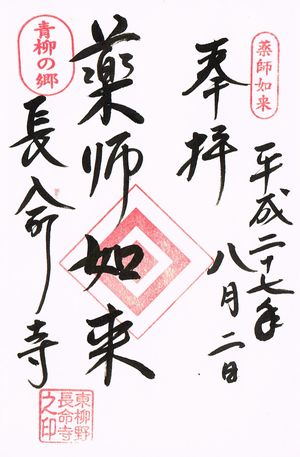 薬師如来
奉拝
平成二十七年
八月二日
薬師如来
青柳の郷
長命寺
東柳野
長命寺
之印